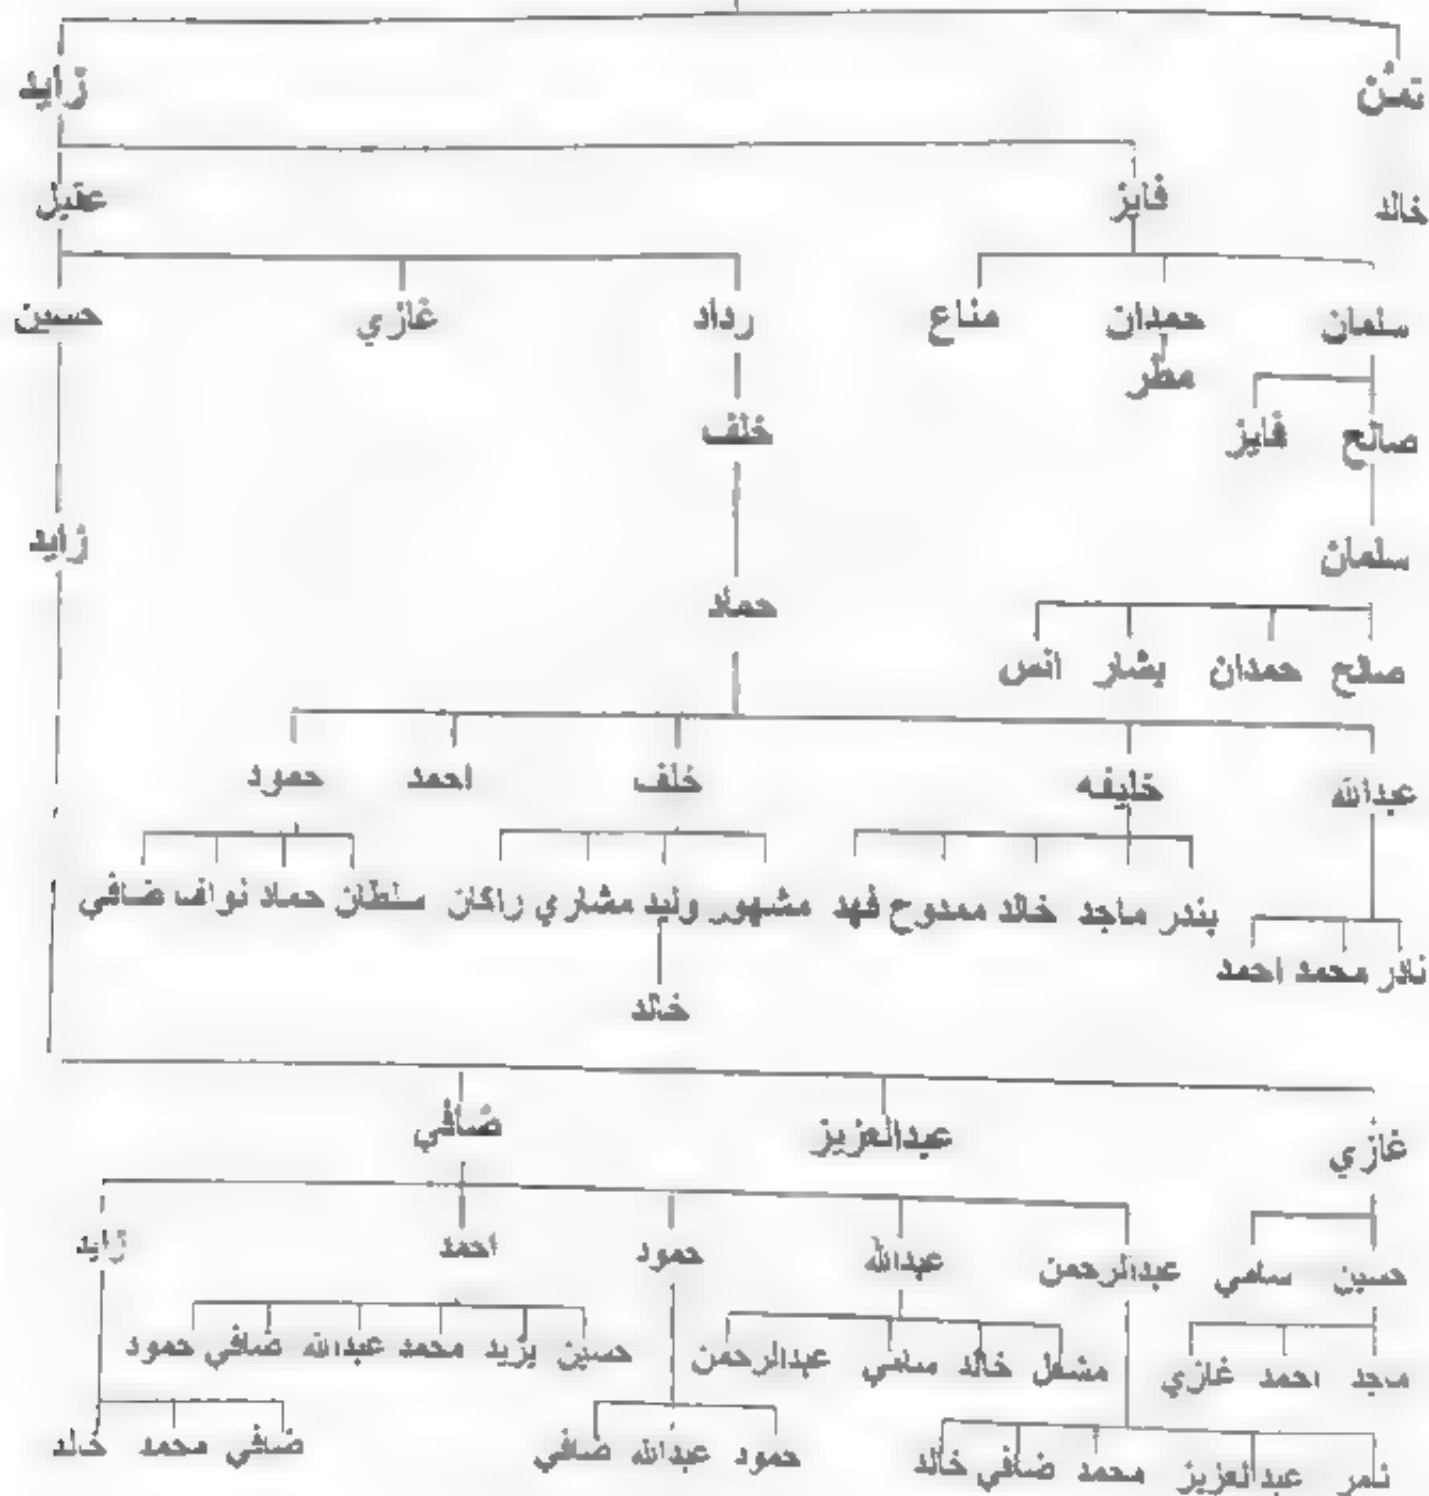 زايد
خالد
فايز
عقيل
سلمان
حمدان
مناع
رداد
غازي
حسين
مطر
صالح
فايز
خلف
سلمان
زايد
حماد
صالح
حمدان
بشار
انس
عبدالله
خليفه
خلف
احمد
حمود
بندر ماجد خالد ممدوح فهد
مشهور وليد مشاري راكان
سلطان حماد نواف ضافي
نادر محمد احمد
خالد
غازي
عبدالعزيز
ضافي
حسين
سامي
عبدالرحمن
عبدالله
حمود
احمد
زايد
ماجد احمد غازي
مشعل خالد سامي عبدالرحمن
حسين يزيد محمد عبدالله ضافي حمود
ثامر عبدالعزيز محمد ضافي خالد
حمود عبدالله ضافي
ضافي محمد خالد